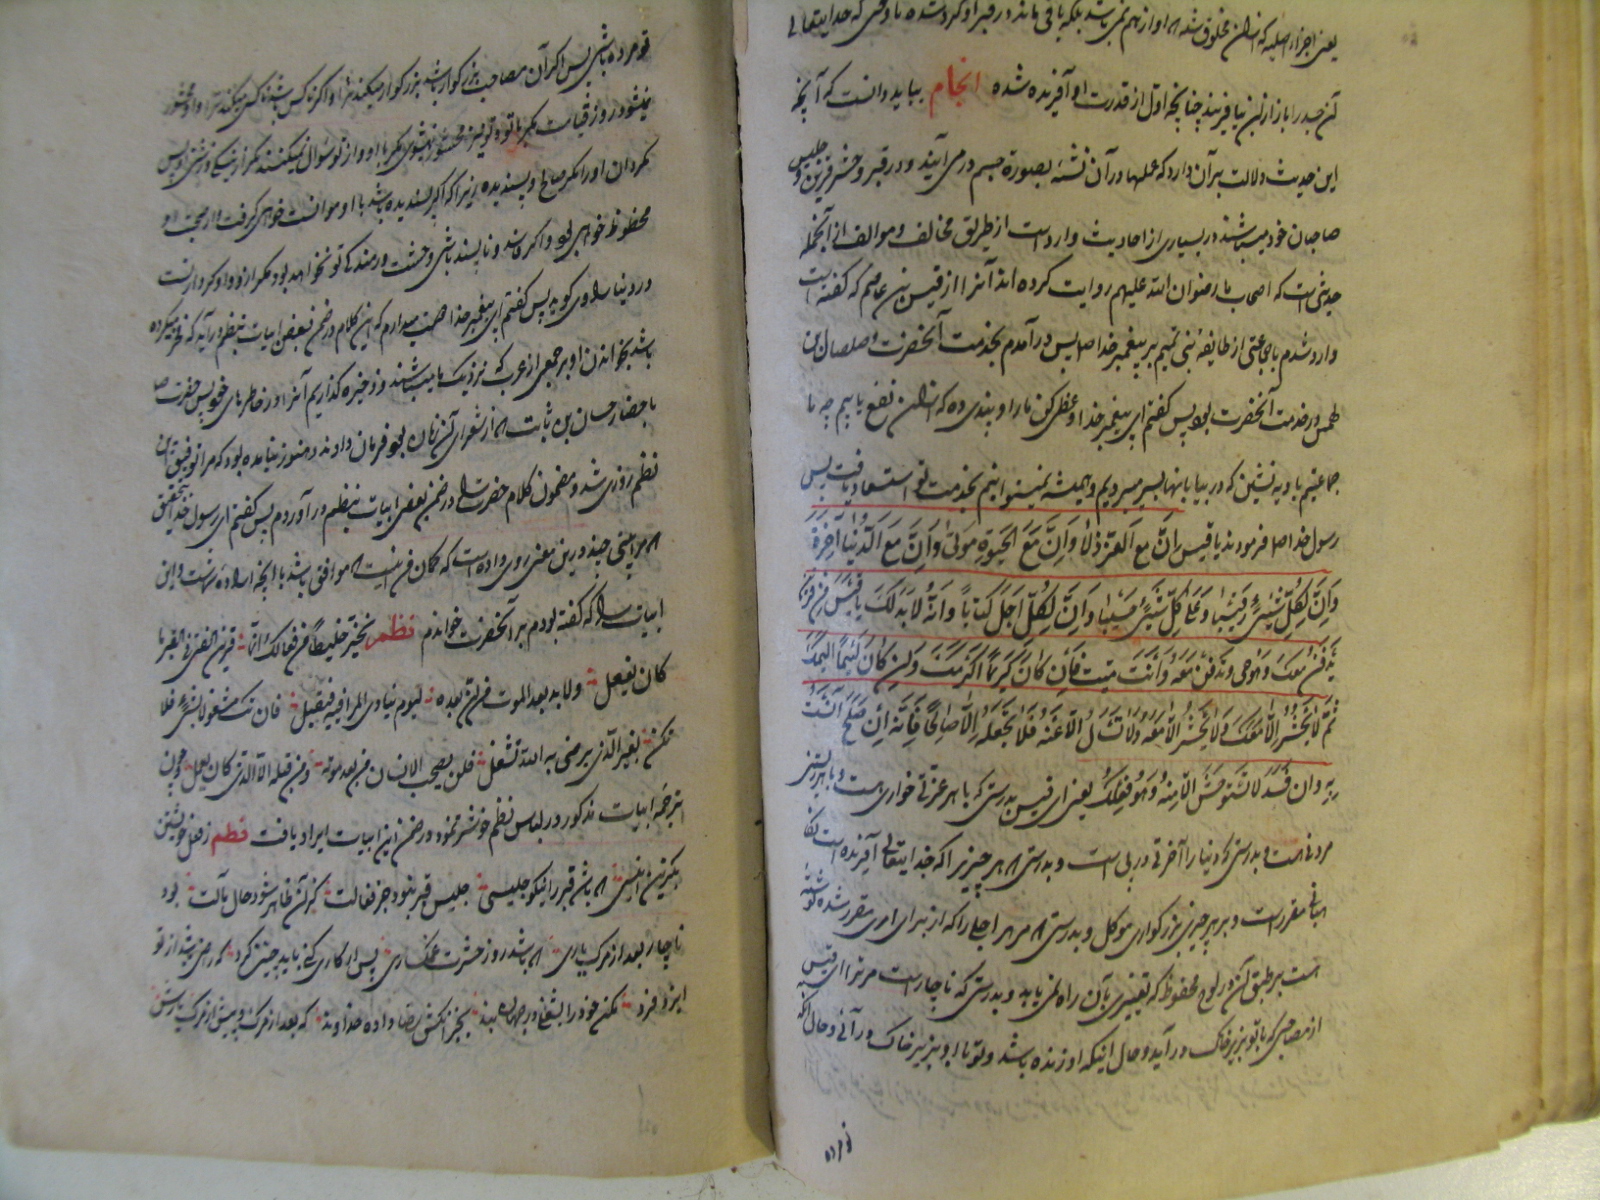 یعنی اجزاء اصلیه که انسان مخلوق شده از او از هم نمی پاشد بلکه باقی ماند در قبر او گرد شده تا وقتی که خدایتعالی
آن جسد را باز از این بیافریند چنانچه اول از قدرت او آفریده شده انجام بباید دانست که آنچه
این حدیث دلالت بر آن دارد که عملها در آن نشئه بصورة جسم در می آیند و در قبر و حشر قرین و جلیس
صاحبان خود میباشند در بسیاری از احادیث وارد است از طریق مخالف و موالف از آنجمله
حدیثی است که اصحاب ما رضوان الله علیهم روایت کرده اند آنرا از قیس بن عاصم که گفته است
وارد شدم با جماعتی از طایفه بنی تمیم بر پیغمبر خدا ص پس در آمدم بخدمت آنحضرت و صلصال بن
در خدمت آنحضرت بود پس گفتم ای پیغمبر خدا وعظی کن ما را و پندی ده که از آن نفع یابیم چه ما
جماعتیم بادیه نشین که در بیابانها بسر میبریم و همیشه نمیتوانیم بخدمت تو استسعاد یافت پس
رسول خدا ص فرمودند یا قیس انّ مع العزّ ذلا وانّ مع الحیوة موتی وانّ مع الدّنیا آخرة
وانّ لکلّ شیئ رقیبا وعلی کلّ شیئ حسیبا وانّ لکلّ اجل کتابا وانّه لا بدّ لک یا قیس من قرین
یدفن معک وهو حی وتدفن معه وانت میت فان کان کریما اکرمک وان کان لئیما اسلمک
ثمّ لا یحشر الاّ معک ولا تحشر الاّ معه ولا تسأل الاّ عنه فلا تجعله الاّ صالحا فانّه ان صلح آنست
به وان فسد لا تستوحش الاّ منه وهو فعلک یعنی ای قیس بدرستی که با هر عزتی خواری هست و با هر زیستنی
مردنی هست و بدرستی که دنیا را آخرتی در پی است و بدرستی که هر چیزی را که خدایتعالی آفریده است
نگاهبانی مقرر است و بر هر چیزی بزرگواری موکل و بدرستی که مر هر اجلی را که از برای امری مقرر شده نوشته
است بر طبق آن در لوح محفوظ که تغییری بآن راه نمی یابد و بدرستی که ناچار است مر ترا ای قیس
از مصاحبی که با تو بزیر خاک در آید و حال اینکه او زنده باشد و تو با او بزیر خاک در آئی و حال آنکه
تو مرده
تو مرده باشی پس اگر آن مصاحب بزرگوار باشد بزرگوار میکند ترا و اگر ناکس باشد ناکس میکند ترا و او محشور
نمیشود روز قیامت مگر با تو و تو نیز محشور نمیشوی مگر با او و از تو سؤال نمیکنند مگر از نیکی و زشتی او پس
مگردان او را مگر صالح و پسندیده زیرا که اگر پسندیده باشد با او موانست خواهی گرفت و از صحبت او
محظوظ خواهی بود و اگر فاسد و ناپسند باشی وحشت و رمندگی تو نخواهد بود مگر از او و او کردار تست
در دنیا راوی گوید پس گفتم ای پیغمبر خدا دوست میدارم که این کلام در ضمن بعضی ابیات بنظم در آید که فخر میکرده
باشیم بخواندن او بر جمعی از عرب که نزدیک ما میباشند و ذخیره گذاریم آنرا در خاطرهای خود پس حضرت ص
باحضار حسان بن ثابت که از شعرای آن زمان بود فرمان دادند و هنوز نیامده بود که مرا توفیق این
نظم روزی شد و مضمون کلام حضرت را در ضمن بعضی ابیات بنظم در آوردم پس گفتم ای رسول خدا بتحقیق
که مرا بیتی چند در این معنی روی داده است که گمان من اینست که موافق باشد با آنچه اراده تست و این
ابیات را که گفته بودم بر آنحضرت خواندم نظم تخیّر خلیطا من فعالک انّما قرین الفتی فی القبر ما
کان یفعل ولا بد بعد الموت من ان تعده لیوم ینادی المرء فیه فیقبل فان تک مشغولا بشیئ فلا
تکن بغیر الّذی یرضی به الله تشغل فلن یصحب الانسان من بعد موته ومن قبله الاّ الذی کان یعمل و چون
ترجمه ابیات مذکور در لباس نظم خوشتر نمود در ضمن این ابیات ایراد یافت نظم ز فعل خویشتن
بگزین انیسی که باشد قبر را نیکو جلیسی جلیس قبر نبود جز فعالت کز آن ظاهر شود حال مآلت بود
ناچار بعد از مرگ یاری که باشد روز حشرت غمگساری پس ار کاری کنی باید چنین کرد که راضی باشد از تو
ایزد فرد مکن خود را بشغلی در جهان بند بجز آنکش رضا داده خداوند که بعد از مرگ و پیش از مرگ یارش